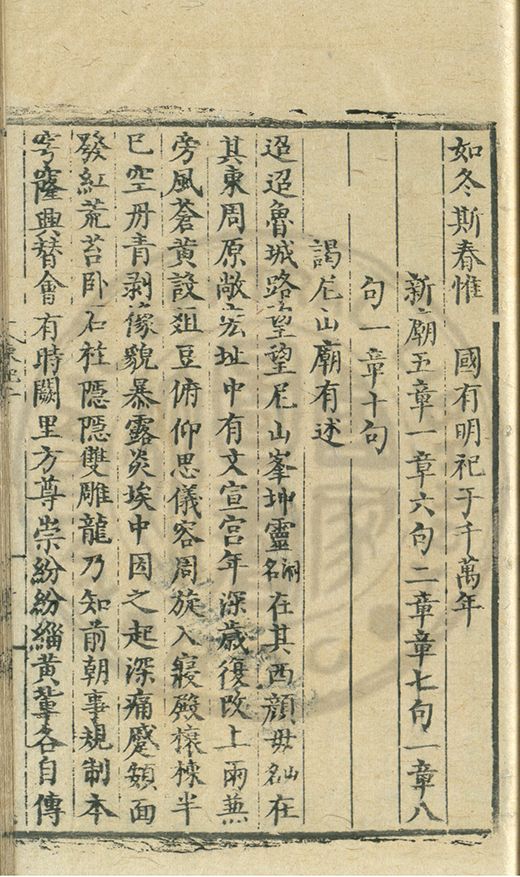 如冬斯春惟　國有明祀于千萬年
新廟五章一章六句二章章七句一章八
句一章十句
謁尼山廟有述
迢迢魯城路望望尼山峯坤靈洞名在其西顔毋山名在
其東周原敞宏址中有文宣宫年深歳復改上雨蒹
旁風蒼黄設爼豆俯仰思儀容周旋入寢殿榱棟半
巳空丹青剥像貌暴露炎埃中因之起深痛蹙頞面
發紅荒苔卧石柱隠隠雙雕龍乃知前朝事規制本
穹窿興替會有時闕里方尊崇紛紛緇黄輩各自傳